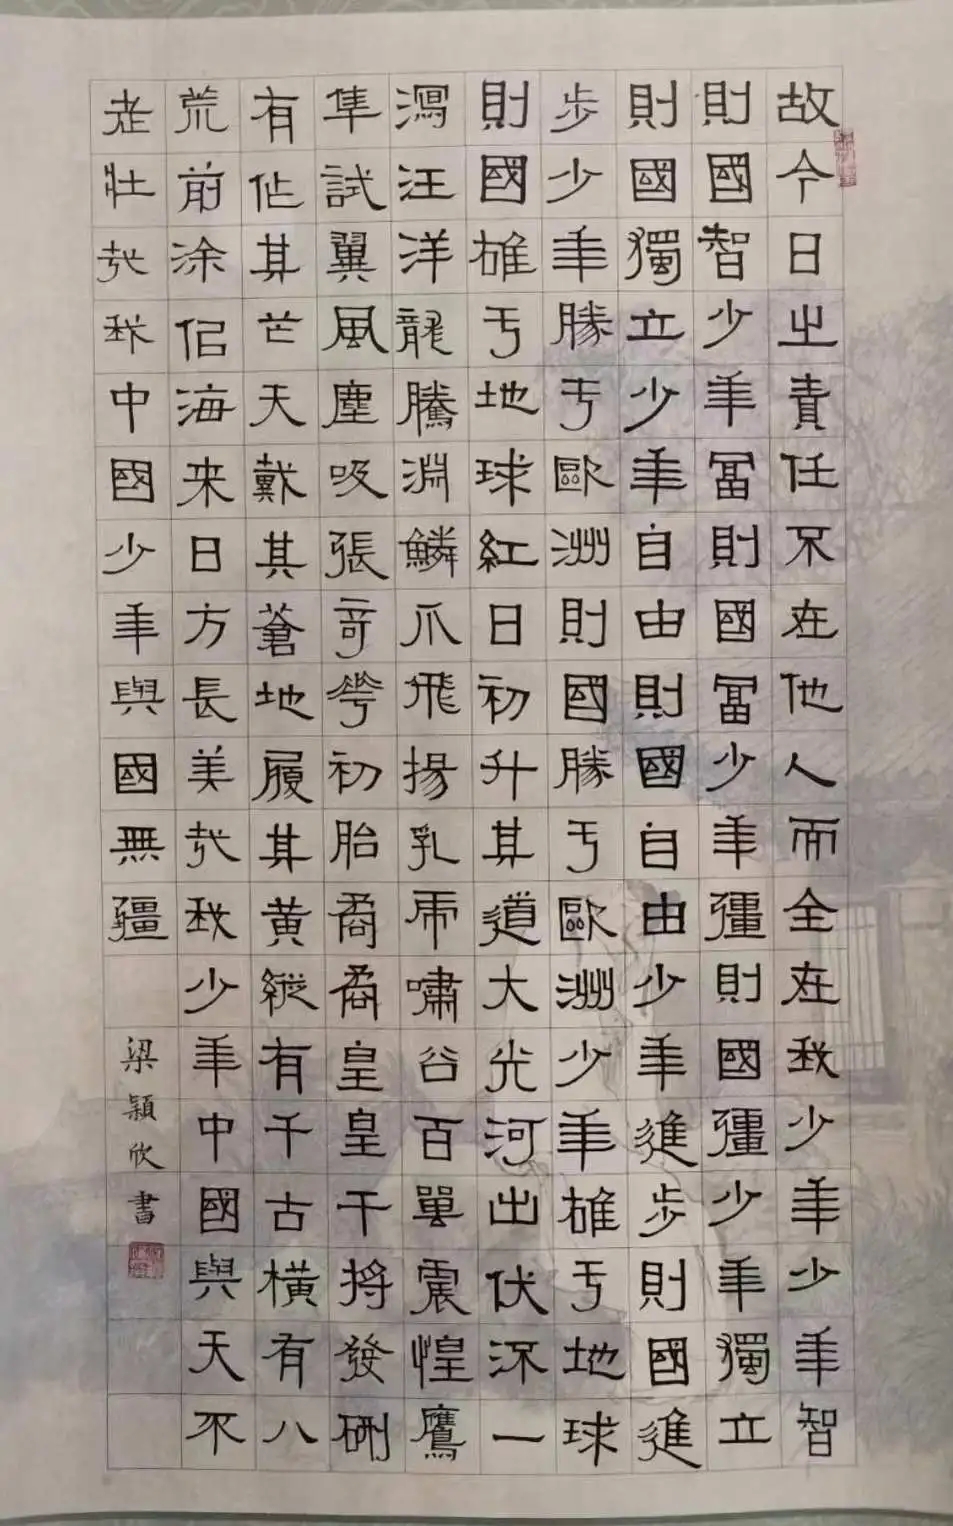 故今日之責任不在他人而全在我少年少年智
則國智少年富則國富少年彊則國彊少年獨立
則國獨立少年自由則國自由少年進步則國進
步少年勝于歐洲則國勝于歐洲少年雄于地球
則國雄于地球紅日初升其道大光河出伏流一
瀉汪洋龍騰淵鱗爪飛揚乳虎嘯谷百嘼震惶鷹
隼試翼風塵吸張奇花初胎矞矞皇皇干將發硎
有作其芒天戴其蒼地履其黃縱有千古橫有八
荒前涂侣海来日方長美哉我少年中國與天不
老壯哉我中國少年與國無疆
梁穎欣書